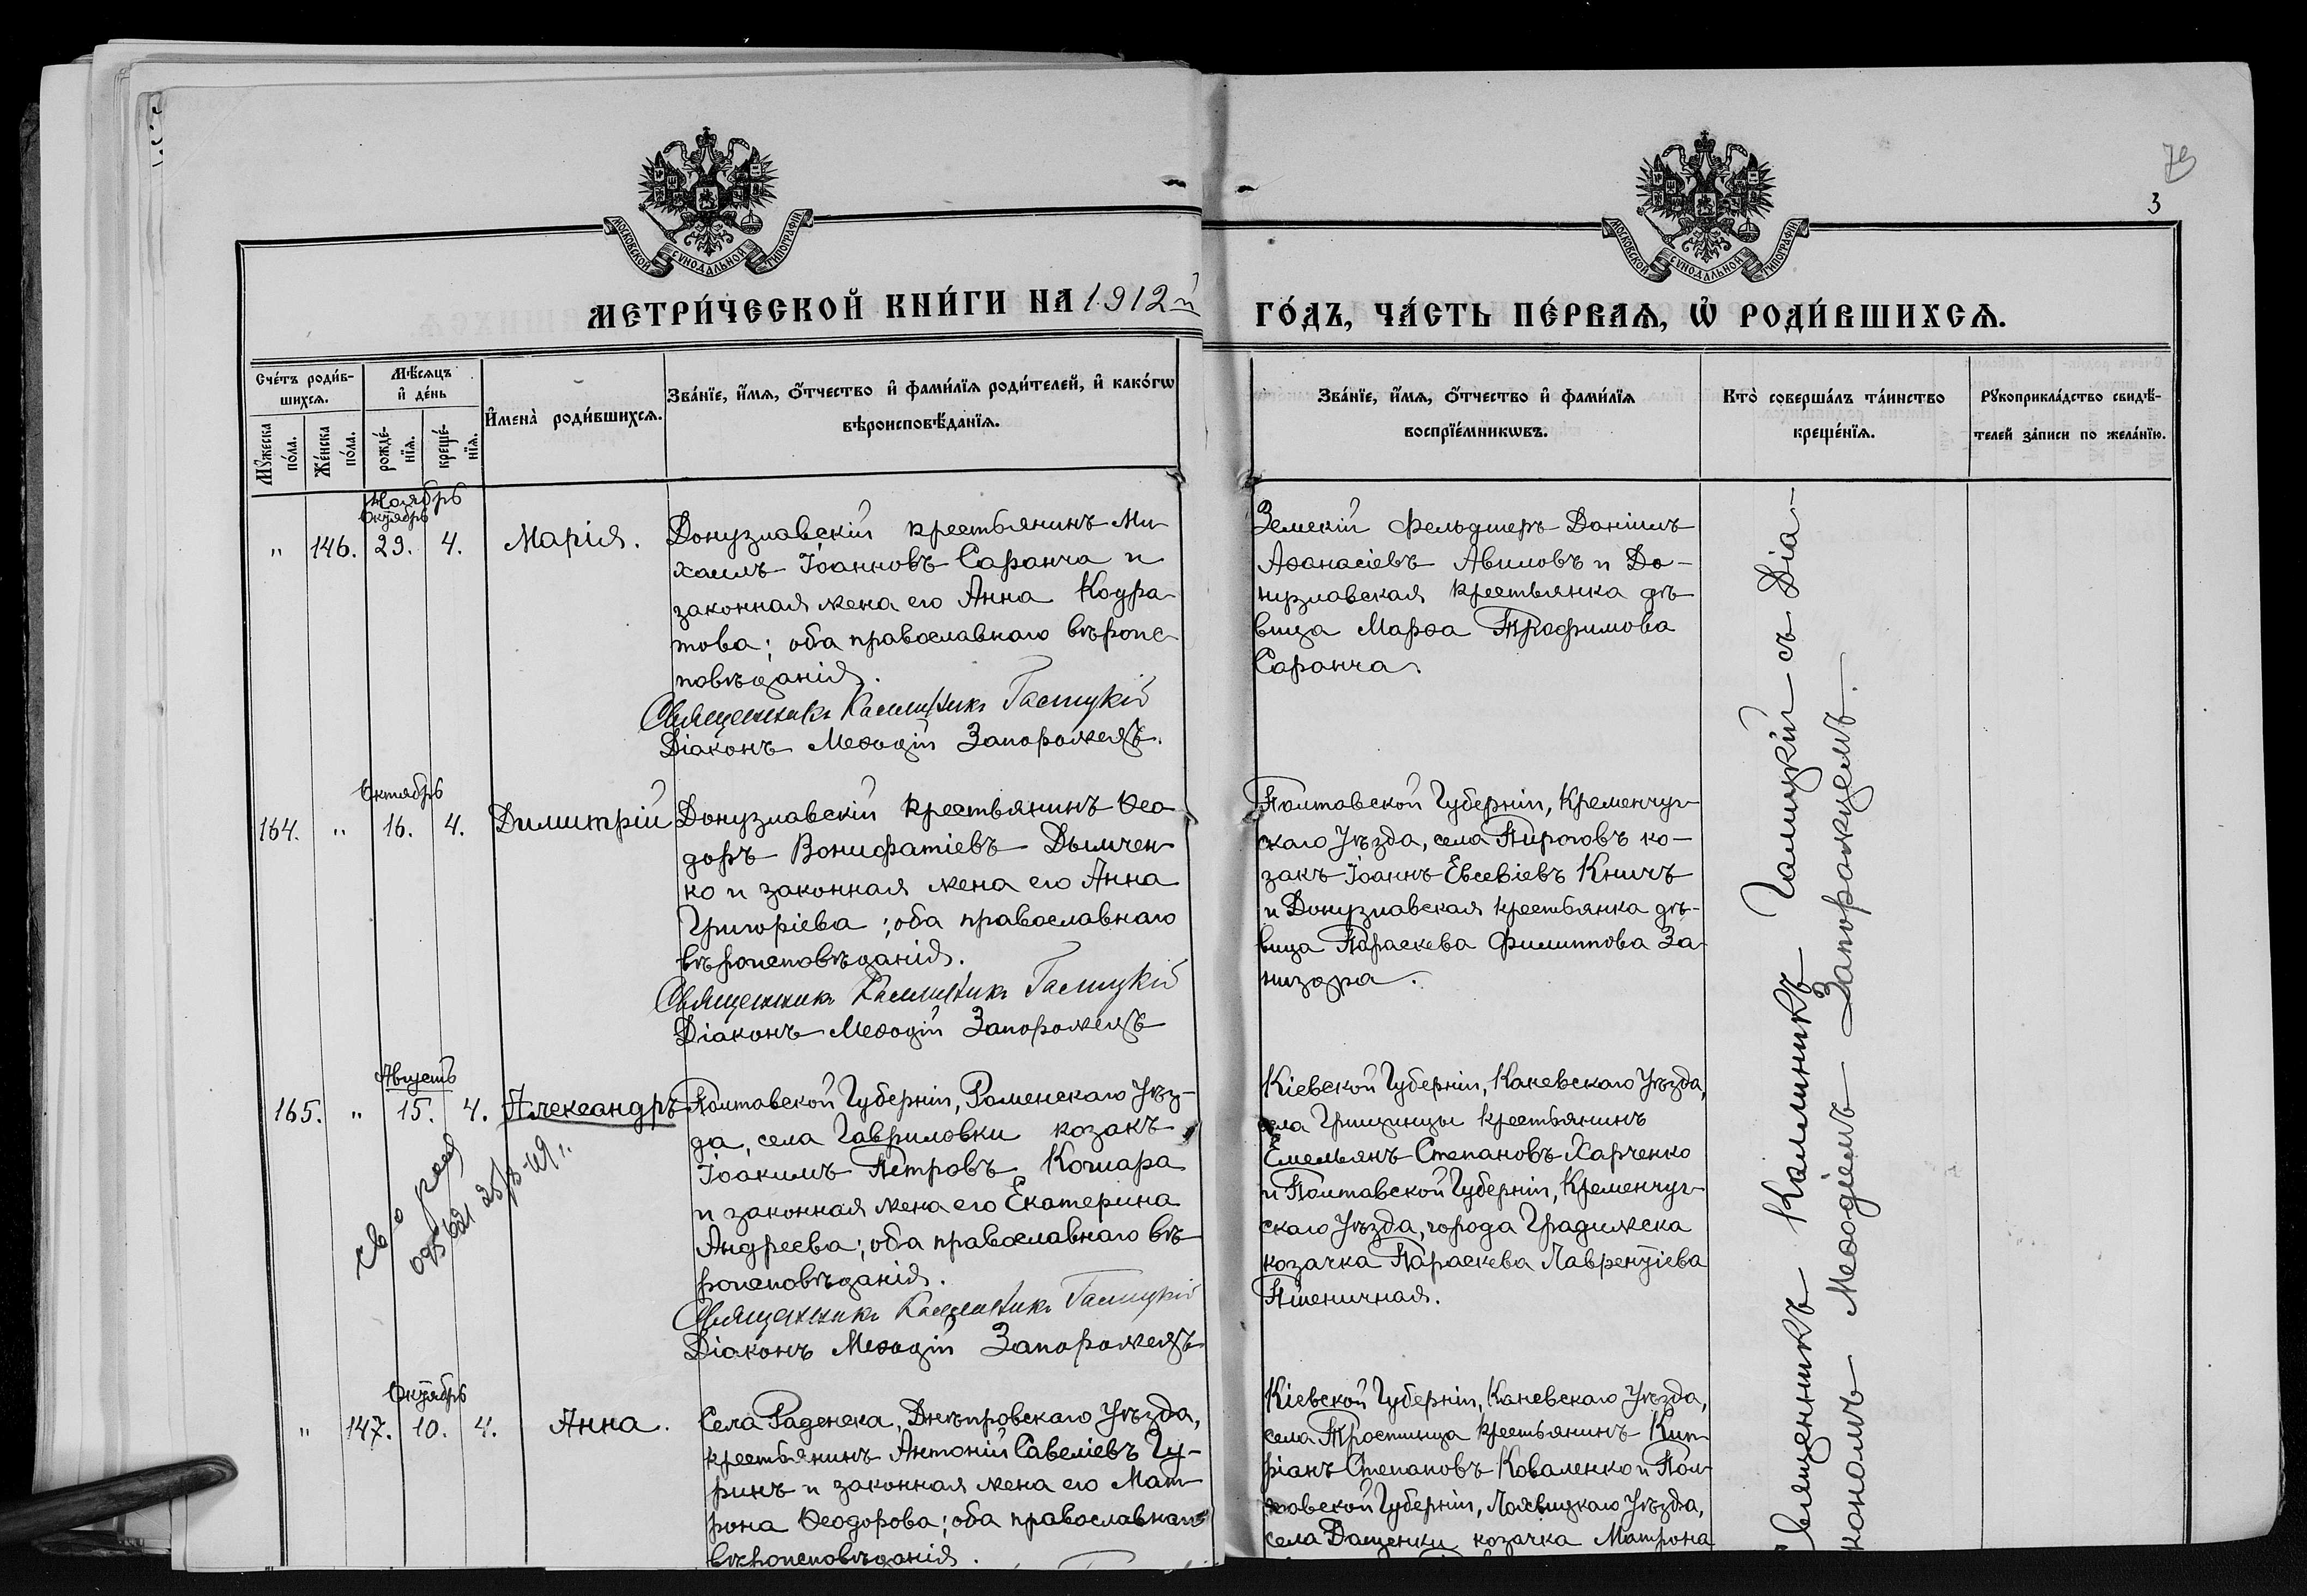 79
3
МОСКОВСКОЙ СѴНОДАЛЬНОЙ ТИПОГРАФІИ
МОСКОВСКОЙ СѴНОДАЛЬНОЙ ТИПОГРАФІИ
МЕТРИ́ЧЕСКОЙ КНИ́ГИ НА 1912й
ГО́ДЪ, ЧА́СТЬ ПЕ́РВАѦ, Ѡ҆ РОДИ́ВШИХСѦ.
Сче́тъ роди́в-
шихсѧ.
Мꙋ́жеска
по́ла.
Же́нска
по́ла.
Мѣ́сѧцъ
и҆ де́нь
рожде́-
нїѧ.
креще́-
нїѧ.
И҆мена̀ роди́вшихсѧ.
Зва́нїе, и҆́мѧ, ѻ҆́тчество и҆ фами́лїѧ роди́телей, и҆ како́гѡ
вѣроисповѣ́данїѧ.
Зва́нїе, и҆́мѧ, ѻ҆́тчество и҆ фами́лїѧ
воспрїе́мникѡвъ.
Кто̀ соверша́лъ та́инство
креще́нїѧ.
Рꙋкоприкла́дство свидѣ́-
телей за́писи по жела́нїю.
Ноябрь
Октябрь
" 146. 29. 4. Марія.
Донузлавскій крестьянинъ Ми-
хаилъ Іоанновъ Саранча и
законная жена его Анна Кодра-
това; оба православнаго вѣроис-
повѣданія.
Священникъ Каллиникъ Галицкій
Діаконъ Меѳодій Запорожецъ.
Земскій Фельдшеръ Даніилъ
Аѳанасіевъ Авиловъ и До-
нузлавская крестьянка дѣ-
вица Марѳа Трофимова
Саранча.
Октябрь
164. " 16. 4. Димитрій
Донузлавскій крестьянинъ Ѳео-
доръ Вонифатіевъ Дымчен-
ко и законная жена его Анна
Григоріева; оба православнаго
вѣроисповѣданія.
Священникъ Каллиникъ Галицкій
Діаконъ Меѳодій Запорожецъ
Полтавской Губерніи, Кременчуг-
скаго Уѣзда, села Пироговъ ко-
закъ Іоаннъ Евсевіевъ Кничъ
и Донузлавская крестьянка дѣ-
вица Параскева Филиппова За-
низдра.
Августъ
165. " 15. 4. Александръ
Полтавской Губерніи, Роменскаго Уѣз-
да, села Гавриловки козакъ
Іоакимъ Петровъ Кошара
и законная жена его Екатерина
Андреева; оба православнаго вѣ-
роисповѣданія.
Священникъ Каллиникъ Галицкій
Діаконъ Меѳодій Запорожецъ
Кіевской Губерніи, Каневскаго Уѣзда,
села Грищинцы крестьянинъ
Емельянъ Степановъ Харченко
и Полтавской Губерніи, Кременчуг-
скаго Уѣзда, города Градижска
козачка Параскева Лаврентіева
Пшеничная.
Октябрь
" 147. 10. 4. Анна.
Села Раденска, Днѣпровскаго Уѣзда,
крестьянинъ Антоній Савеліевъ Гу-
ринъ и законная жена его Мат-
рона Ѳеодорова; оба православнаго
вѣроисповѣданія.
Кіевской Губерніи, Каневскаго Уѣзда,
села Тростинца крестьянинъ Кип-
ріанъ Степановъ Коваленко и Пол-
тавской Губерніи, Лохвицкаго Уѣзда,
села Дащенки козачка Матрона
Священникъ Каллиникъ Галицкій съ Діа-
кономъ Меѳодіемъ Запорожцемъ.